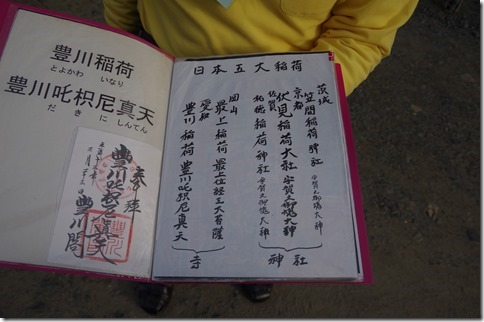 豊川稲荷
とよかわ いなり
豊川吒枳尼真天
だ き に しんてん
奉拝
豊川吒枳尼真天
豊川閣
日本五大稲荷
茨城
笠間稲荷神社 宇賀之御魂大神
京都
伏見稲荷大社 宇賀之御魂大神
佐賀
祐徳稲荷神社 宇賀之御魂大神
神社
岡山
最上稲荷 最上位経王大菩薩
愛知
豊川稲荷 豊川吒枳尼真天
寺